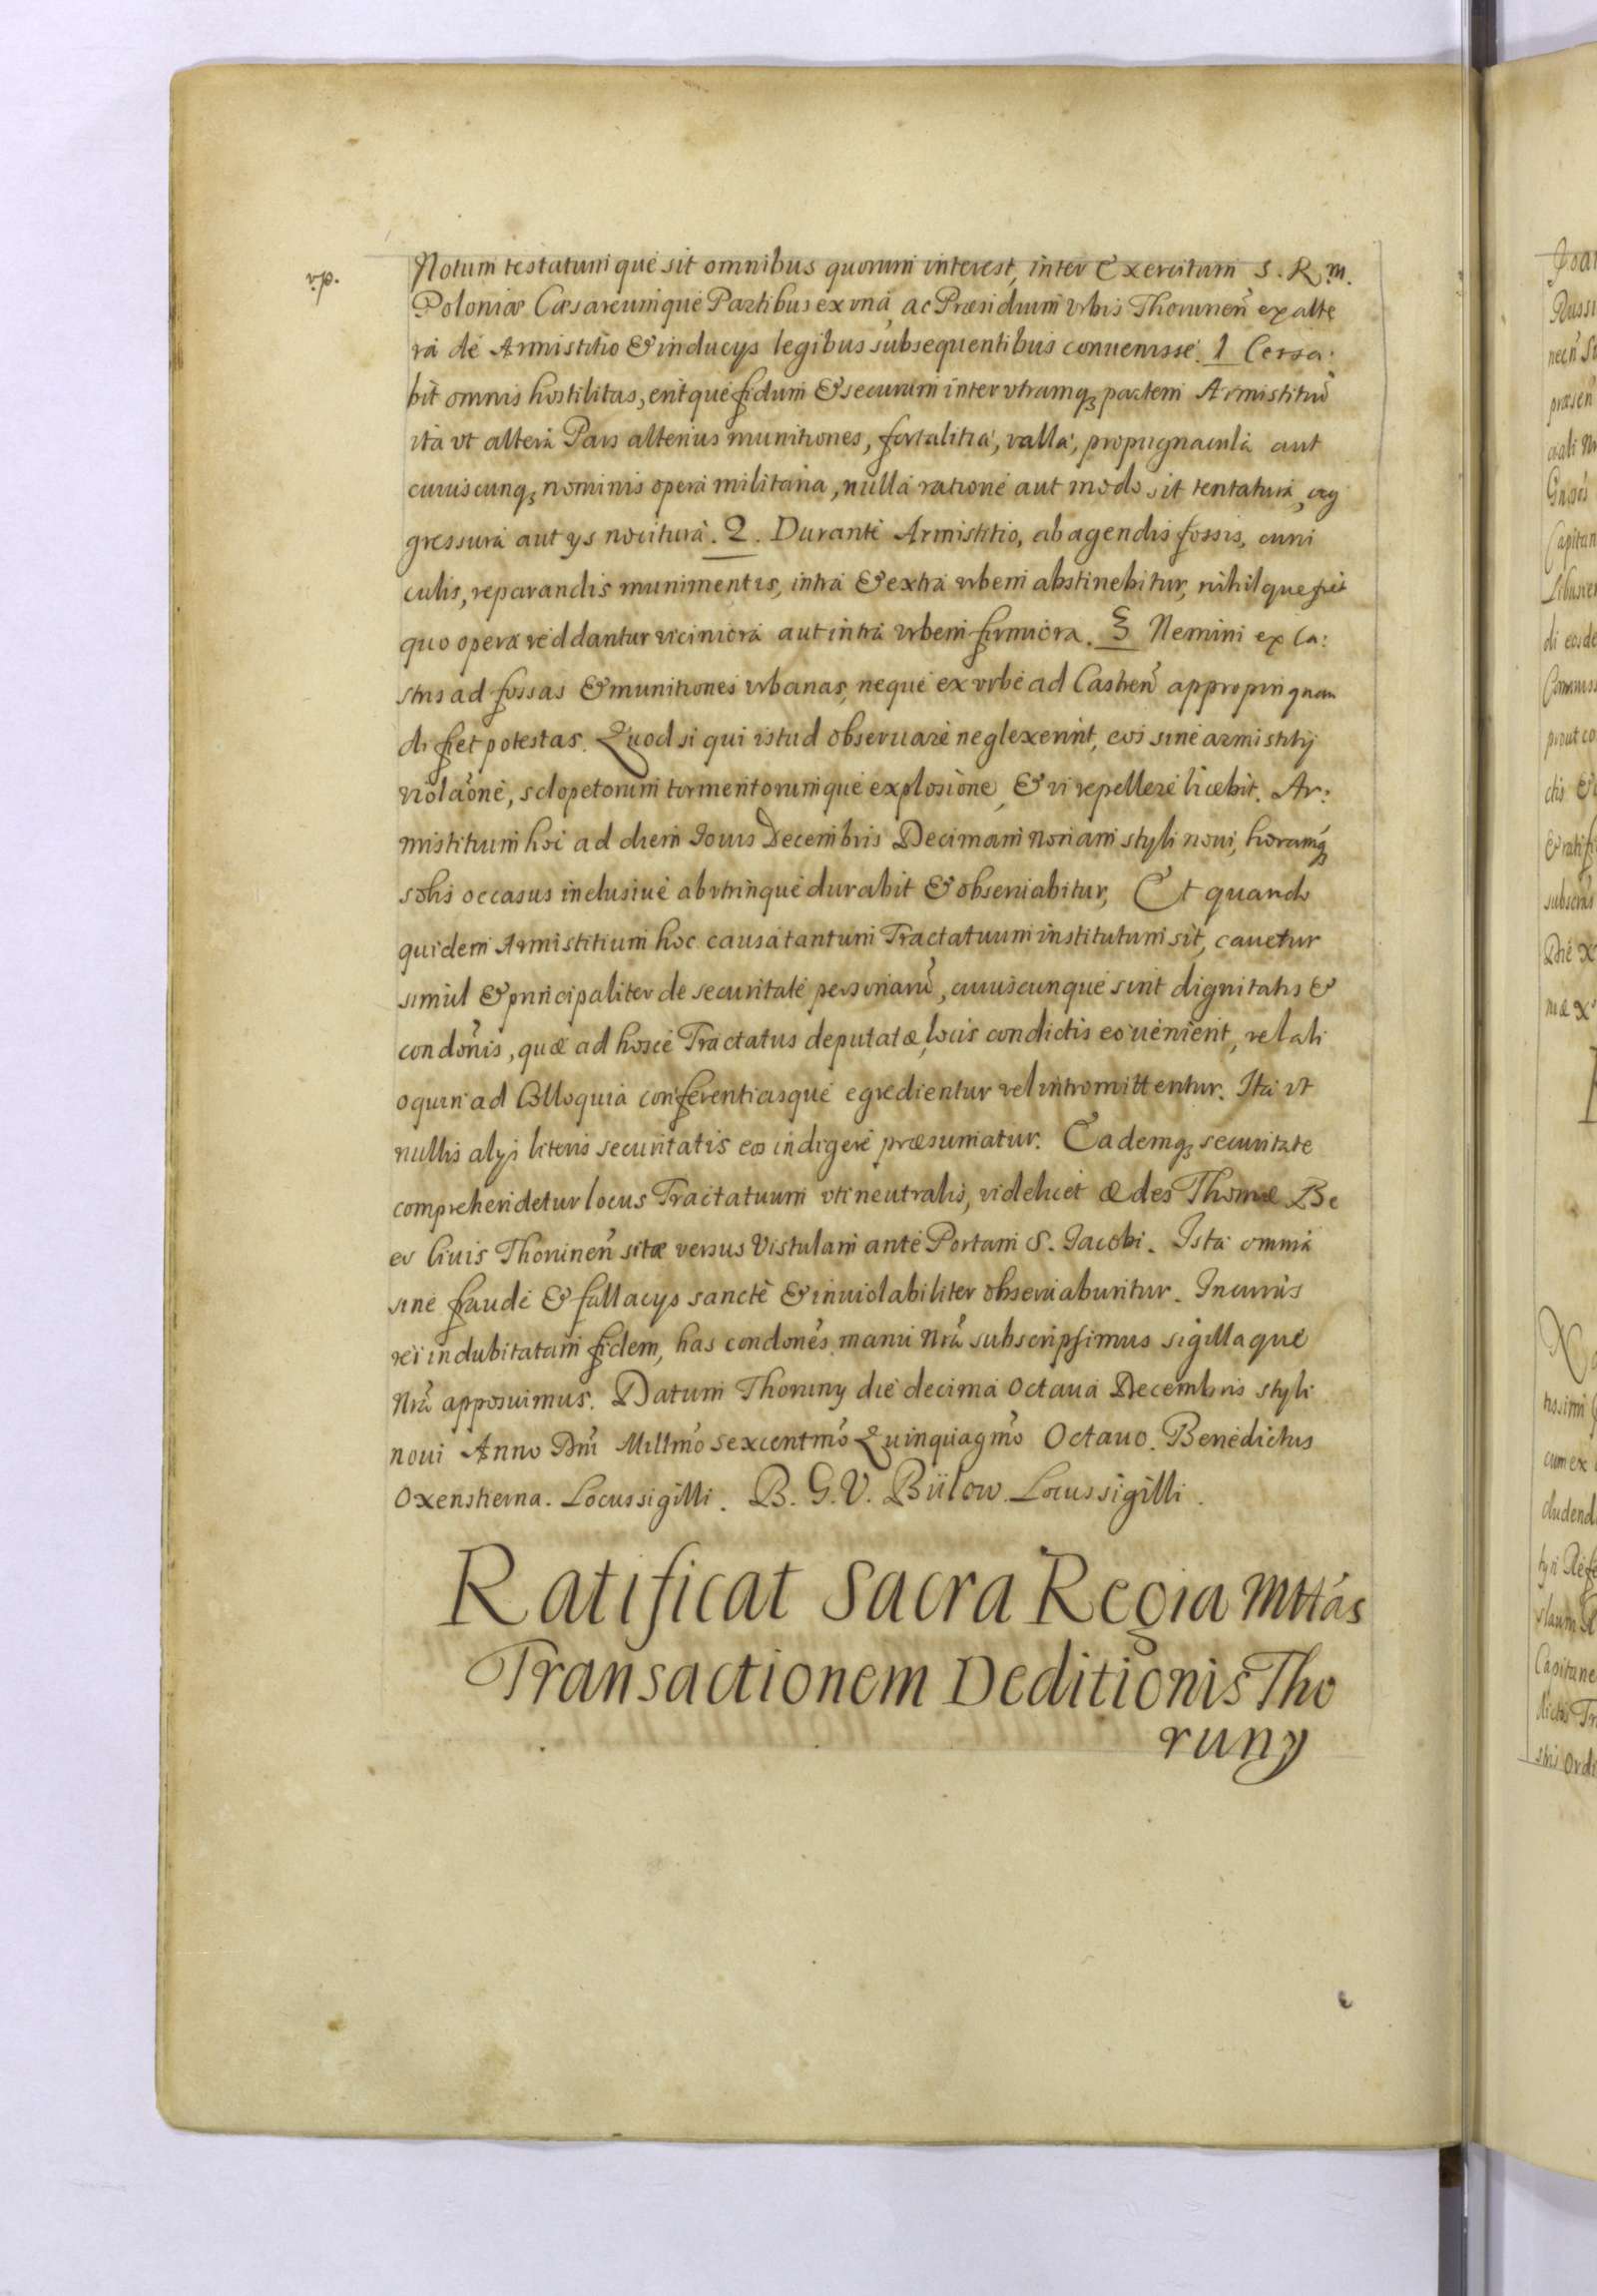 vp.
Notum testatumque sit omnibus quorum interest, inter Exercitum S. R. M.
Poloniæ Cæsareumque Partibus ex una, ac Præsidium Vrbis Thorunen̄ ex alte
ra de Armistitio & inducys legibus subsequentibus conuenisse. 1 Cessa:
bit omnis hostilitas, eritque fidum & securum inter vtramq; partem Armistitiū
ita vt altera Pars alterius munitiones, fortalitia, valla, propugnacula aut
cuiuscunq; nominis opera militaria, nulla ratione aut modo sit tentatura, ag
gressura aut ys nocitura. 2. Durante Armistitio, ab agendis fossis, cuni
culis, reparandis munimentis, intra & extra vrbem abstinebitur, nihilque fiet
quo opera reddantur viciniora aut intra vrbem firmiora. 3 Nemini ex Ca:
stris ad fossas & munitiones vrbanas, neque ex vrbe ad Castren̄ appropinquan
di fiet potestas. Quod si qui istud obseruare neglexerint, eos sine armistitij
violaōne, sclopetorum tormentorumque explosione, & vi repellere licebit. Ar:
mistitium hoc ad diem Iouis Decembris Decimam nonam styli noui, horamq;
solis occasus inclusiue ab vtrinque durabit & obseruabitur, Et quando
quidem Armistitium hoc causa tantum Tractatuum institutum sit, cauetur
simul & principaliter de securitate personarū, cuiuscunque sint dignitatis &
condōnis, quæ ad hosce Tractatus deputatæ, locis condictis eo uenient, vel ali
oquin ad Colloquia conferentiasque egredientur vel intromittentur. Ita vt
nullis alys literis securitatis eos indigere præsumatur. Eademq; securitate
comprehendetur locus Tractatuum vti neutralis, videlicet ædes Thomæ Be
er Ciuis Thorunen̄ sitæ versus Vistulam ante Portam S. Jacobi. Ista omnia
sine fraude & fallacys sanctè & inuiolabiliter obseruabuntur. In cuius
rei indubitatam fidem, has condōnes manu nrā subscripsimus sigillaque
nrā apposuimus. Datum Thoruny die decima Octaua Decembris styli
noui Anno Dnī Millmō sexcentmō Quinquagmō Octauo. Benedictus
Oxenstierna. Locus sigilli. B. G. V. Bülow. Locus sigilli.
Ratificat Sacra Regia Mttás
Transactionem Deditionis Tho
runy